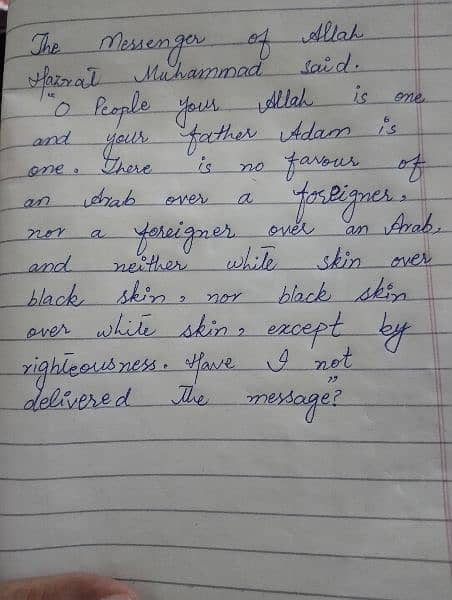 The Messenger of Allah
Hazrat Muhammad said.
"O People your Allah is one
and your father Adam is
one. There is no favour of
an Arab over a foreigner,
nor a foreigner over an Arab,
and neither white skin over
black skin, nor black skin
over white skin, except by
righteousness. Have I not
delivered the message?"